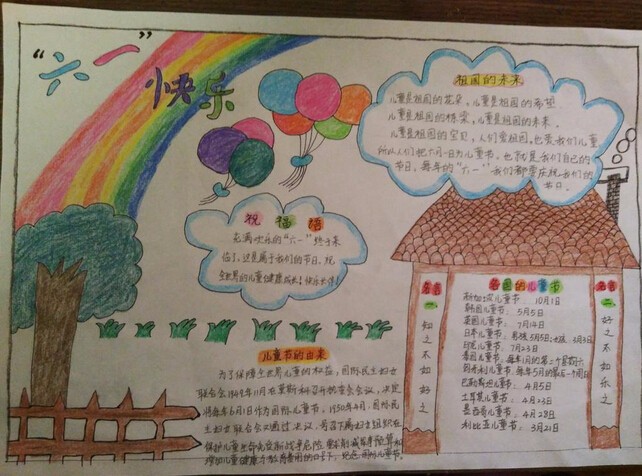 “六一”
快乐
祖国的未来
儿童是祖国的花朵，儿童是祖国的希望
儿童是祖国的栋梁，儿童是祖国的未来。
儿童是祖国的宝贝，人们爱祖国，也爱我们儿童
所以人们把六月一日为儿童节。也就是我们自己的
节日，每年的“六一”我们都要庆祝我们的
节日。
祝福语
充满欢乐的“六一”终于来
临了，这是属于我们的节日，祝
全世界的儿童健康成长！快乐永伴！
儿童节的由来
为了保障全世界儿童的权益，国际民主妇女
联合会1949年11月在莫斯科召开执委会会议，决定
将每年6月1日作为国际儿童节。1950年4月，国际民
主妇女联合会又通过决议，号召下属妇女组织在
保护儿童生命免受新战争危险
增加儿童健康
名言一
知之不如好之
各国的儿童节
新加坡儿童节：10月1日
韩国儿童节：5月5日
英国儿童节：7月14日
日本儿童节：男孩5月5日；女孩：3月3日
印尼儿童节：7月23日
泰国儿童节：每年1月的第二个星期六
西班牙儿童节：每年5月的最后一个周日
巴勒斯坦儿童节：4月5日
土耳其儿童节：4月23日
墨西哥儿童节：4月28日
利比亚儿童节：3月21日
名言二
好之不如乐之